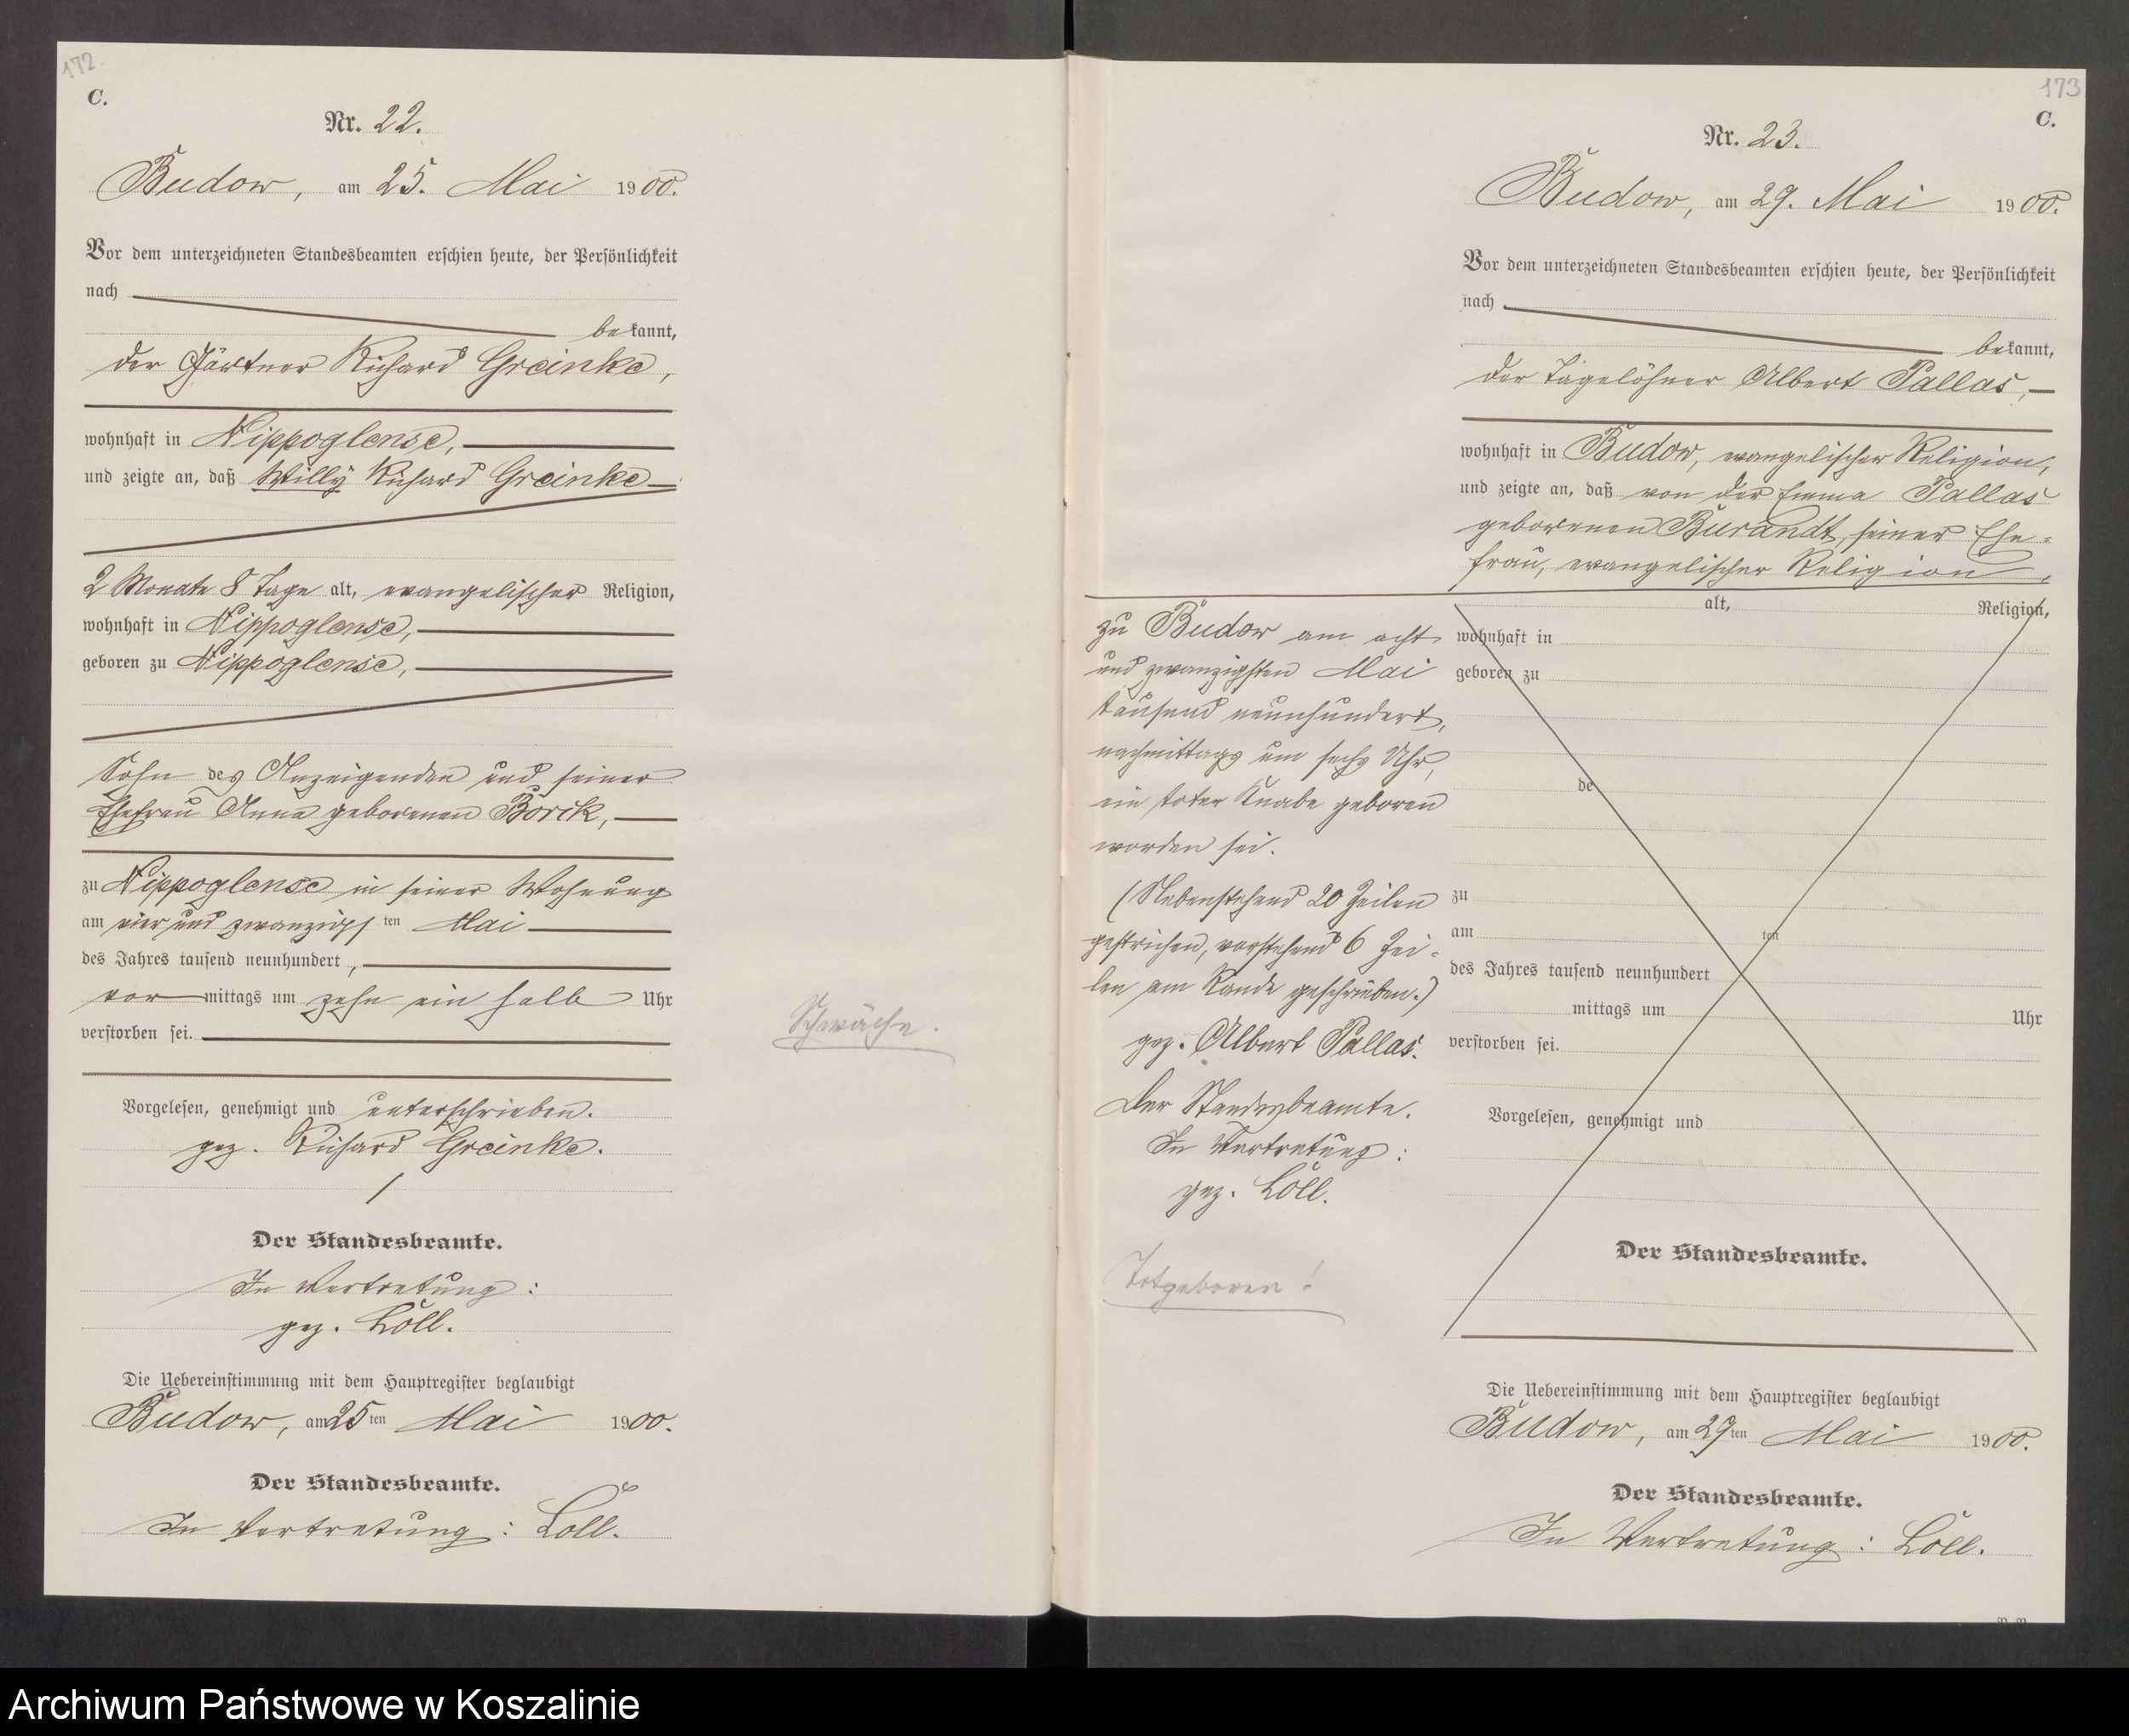 172.
C.
Nr. 22.
Budow, am 25. Mai 1900.
Vor dem unterzeichneten Standesbeamten erschien heute, der Persönlichkeit
nach
bekannt,
der Gärtner Richard Greinke,
wohnhaft in Nippoglense,
und zeigte an, daß Willy Richard Greinke
2 Monate 8 Tage alt, evangelischer Religion,
wohnhaft in Nippoglense,
geboren zu Nippoglense,
Sohn des Anzeigenden und seiner
Ehefrau Anna geborenen Borck,
zu Nippoglense in seiner Wohnung
am vier und zwanzigsten Mai
des Jahres tausend neunhundert,
vormittags um zehn ein halb Uhr
verstorben sei.
Vorgelesen, genehmigt und unterschrieben.
gez. Richard Greinke.
Der Standesbeamte.
In Vertretung:
gez. Löll.
Die Uebereinstimmung mit dem Hauptregister beglaubigt
Budow, am 25ten Mai 1900.
Der Standesbeamte.
In Vertretung: Löll.
Schwäche.
173
C.
Nr. 23.
Budow, am 29. Mai 1900.
Vor dem unterzeichneten Standesbeamten erschien heute, der Persönlichkeit
nach
bekannt,
der Tagelöhner Albert Pallas,
wohnhaft in Budow, evangelischer Religion,
und zeigte an, daß von der Emma Pallas
geborenen Burandt, seiner Ehe=
frau, evangelischer Religion,
zu Budow am acht
und zwanzigsten Mai
tausend neunhundert,
nachmittags um sechs Uhr,
ein toter Knabe geboren
worden sei.
(Nebenstehend 20 Zeilen
gestrichen, vorstehend 6 Zei=
len am Rande geschrieben.)
gez. Albert Pallas.
Der Standesbeamte.
In Vertretung:
gez. Löll.
Totgeboren!
alt, Religion,
wohnhaft in
geboren zu
de
zu
am ten
des Jahres tausend neunhundert
mittags um Uhr
verstorben sei.
Vorgelesen, genehmigt und
Der Standesbeamte.
Die Uebereinstimmung mit dem Hauptregister beglaubigt
Budow, am 29ten Mai 1900.
Der Standesbeamte.
In Vertretung: Löll.
Archiwum Państwowe w Koszalinie